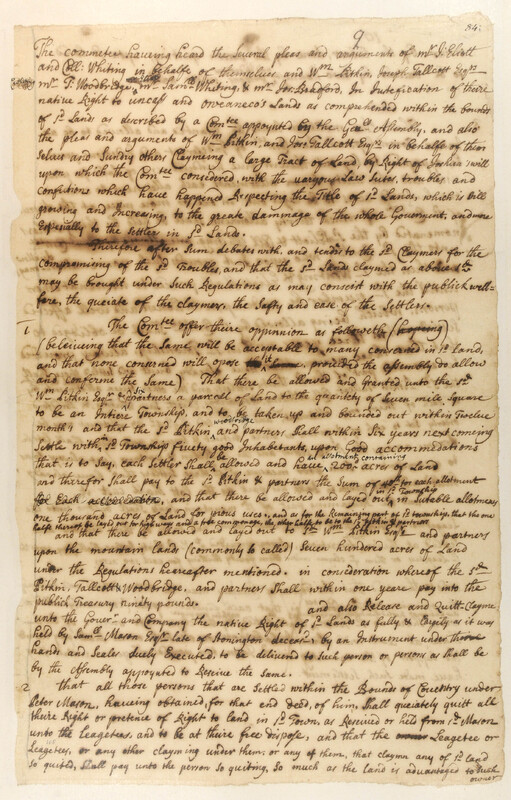 9
84
The commetee haveing heard the Several pleas and arguments of mr. J: Eliott
and Coll: Whiting in behalfe of themselves and Wm Pitkin, Joseph Tallcott Esqrs
mr. T: Woodbridge, mr. Samll Whiting, & mr. Jos: Bakeford, In of theire
native Right to uncass and oweaneco's Lands as comprehended within the bounds
of sd. Lands as described by a Comtee appoynted by the Genll Assembly, and also
the pleas and arguments of Wm Pitkin, and Jos: Tallcott Esqrs. in behalfe of them
Selves and Sundry others Claymeing a large Tract of Land by Right of Joshua's will
upon which the Comtee considered, with the Law Suites, troubles, and
confutions which have happened Respecting the Title of sd. Lands, which is still
growing and Increasing, to the greate dammage of the whole Goverment, and more
Especially to the Settler in sd. Lands.
Therefore after Sum debates with, and tenders to the sd. Claymers for the
compromising of the sd. Troubles, and that the sd. Lands claymed as above sd.
may be brought under Such Regulations as may consist with the publick well-
fare, the quiete of the claymers, the Safty and ease of the Settlers.
1. The Comtee offer theire oppinnion as followeth
(beleiveing that the Same will be acceptable to many concerned in sd. Land,
and that none concerned will opose it, provided the assembly do allow
and confirme the Same) That there be allowed and granted unto the sd.
Wm Pitkin Esqr. & partners a parcell of Land to the quantety of Seven mile Square
to be an Intire Township, and to be taken up and bounded out within Twelve
months and that the sd. Pitkin, woodbridge and partners Shall within Six years next comeing
Settle within sd. Township good Inhabetants, upon Good accommodations
that is to say, each Settler Shall be allowed and have in allotments containing 200 acres of Land
and therefor Shall pay to the sd. Pitkin & partners the Sum of for each allotment
and that there be allowed and layed out in sd. Township in Suteble allotments
one thousand acres of Land for pious uses, and as for the Remaining part of sd. township, that the one
halfe thereof be layed out for high ways and a free commonage, the other halfe to be to sd. Pitkin & partners
and that there be allowed and layed out to sd. Wm Pitkin Esqr. and partners
upon the mountain lands (commonly so called) Seven hundred acres of Land
under the Regulations hereafter mentioned. in consideration whereof the sd.
Pitkin, Tallcott & Woodbridge, and partners Shall within one yeare pay into the
publick Treasury ninety pounds.
and also Release and Quitt-Clayme
unto the Gover and Company the native Right of sd. Lands as fully & Largely as it was
held by Samll Mason Esqr. late of Stonington deceasd; by an Instrument under
hands and Seales duely Executed, to be delivered to such person or persons as shall be
by the Assembly appoynted to Receive the Same.
2 That all those persons that are Settled within the Bounds of Coventry under
Peter Mason, haveing obtained, for that end deed, of him, Shall quiately quit all
theire Right or pretence of Right to land in sd. Town, as Received or held from sd. Mason
unto the Leagetees, and to be at theire free dispose, and that the Leagetee or
Leagetees, or any other clayming under them, or any of them, that claymn any of sd. land
so quited, Shall pay unto the person so quiting, So much as the land is advantaged to such
owner